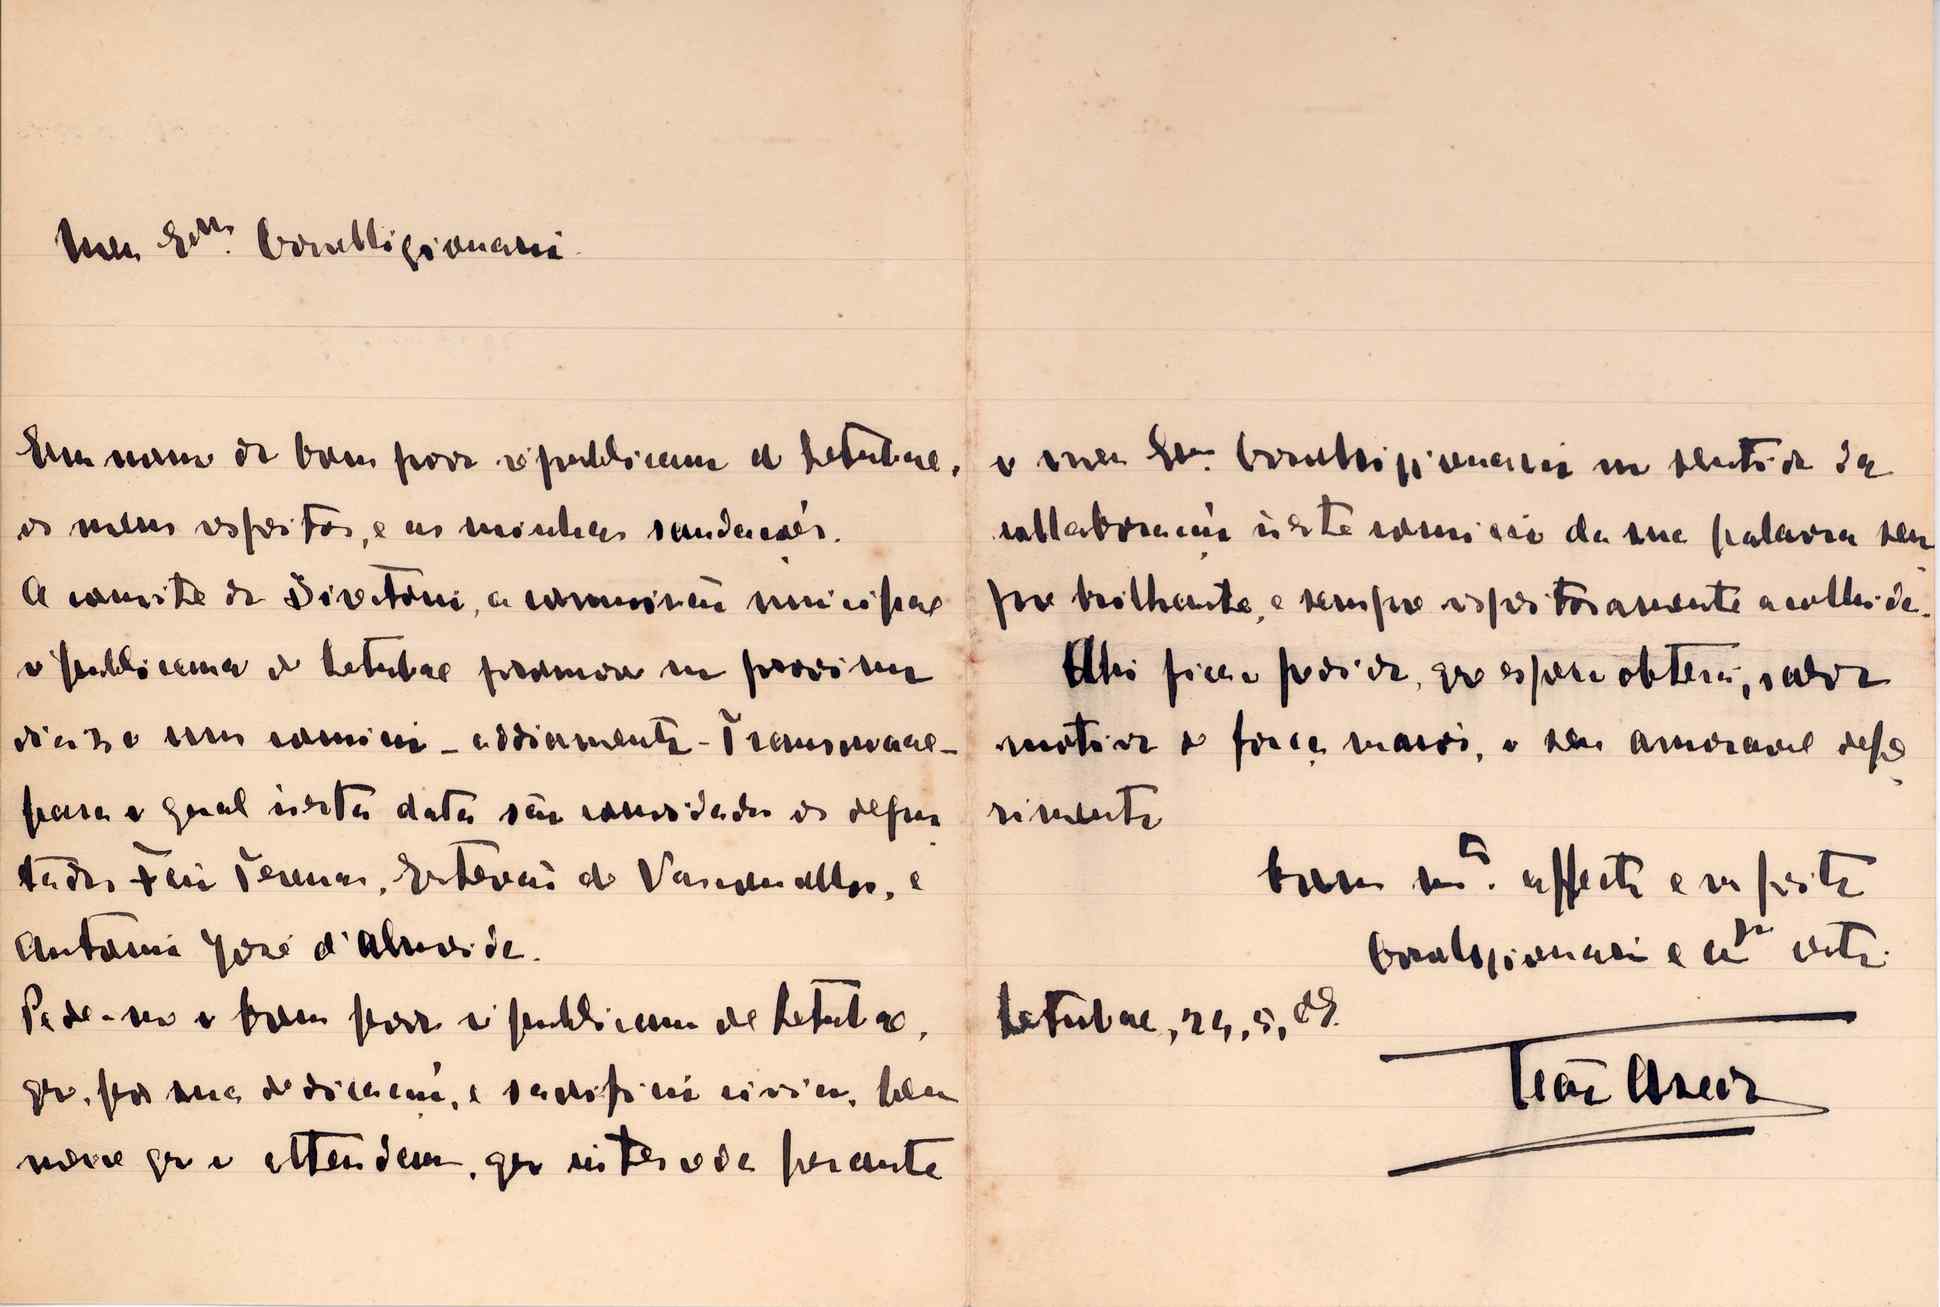 Meu Exmo. Correlligionario.
Em nome do bom povo republicano de Setubal,
os meus respeitos, e as minhas saudações.
A comité do Directorio, a commissão municipal
republicana de Setubal promove no proximo
dia um comicio - addiamento - Transvaal -
para o qual n'esta data são convidados os depu
tados Feio Terenas, Estevão de Vasconcellos, e
Antonio José d'Almeida.
Pede-me o bom povo republicano de Setubal,
que, por sua dedicação, e sacrificio civico, bem
merece que o attendam, que interceda perante
o meu Exmo. Correlligionario no sentido da
collaboração n'este comicio da sua palavra sem
pre brilhante, e sempre respeitosamente acolhida.
Ahi fica o pedido, que espera obterá, salvo
motivo de força maior, o seu amoravel defe
rimento
Com mto. affecto e respeito
Correligionario e cdo
Setubal, 24, 5, 08.
Leão Azedo